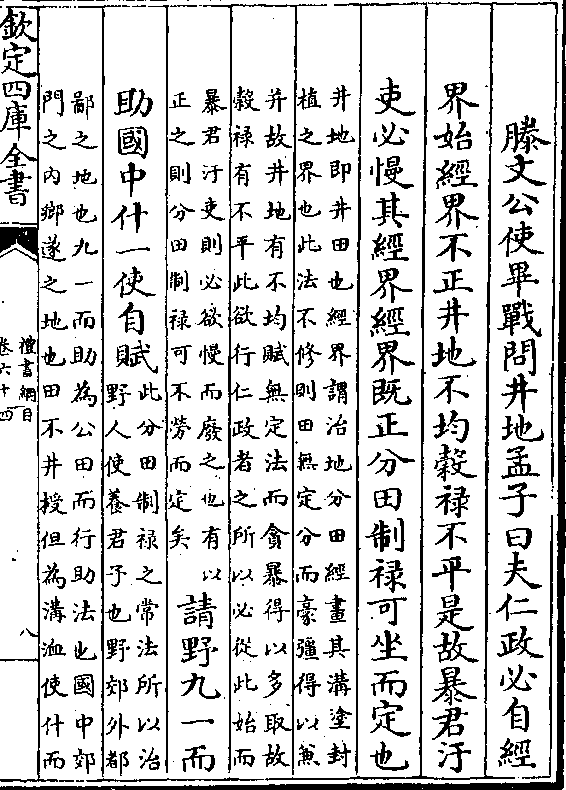 滕文公使畢戰問井地孟子曰夫仁政必自經
界始經界不正井地不均穀禄不平是故暴君汙
吏必慢其經界經界既正分田制禄可坐而定也
井地即井田也經界謂治地分田經畫其溝塗封
植之界也此法不修則田無定分而豪彊得以兼
并故井地有不均賦無定法而貪暴得以多取故
穀禄有不平此欲行仁政者之所以必從此始而
暴君汙吏則必欲慢而廢之也有以
正之則分田制禄可不勞而定矣
請野九一而
助國中什一使自賦
此分田制禄之常法所以治
野人使養君子也野郊外都
鄙之地也九一而助為公田而行助法也國中郊
門之内鄉遂之地也田不井授但為溝洫使什而
欽定四庫全書
禮書綱目
卷六十四
八